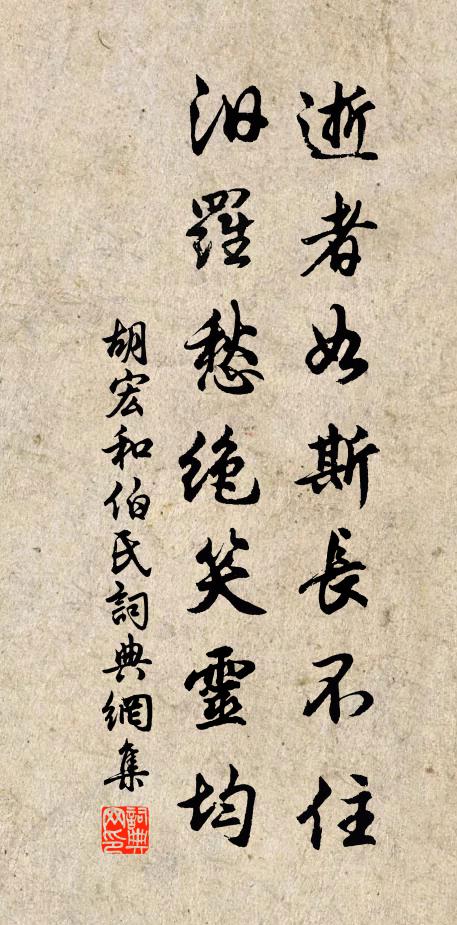 逝者如斯長不住
汨羅愁絶笑靈均
胡宏和伯氏詞典網集
詞典網印